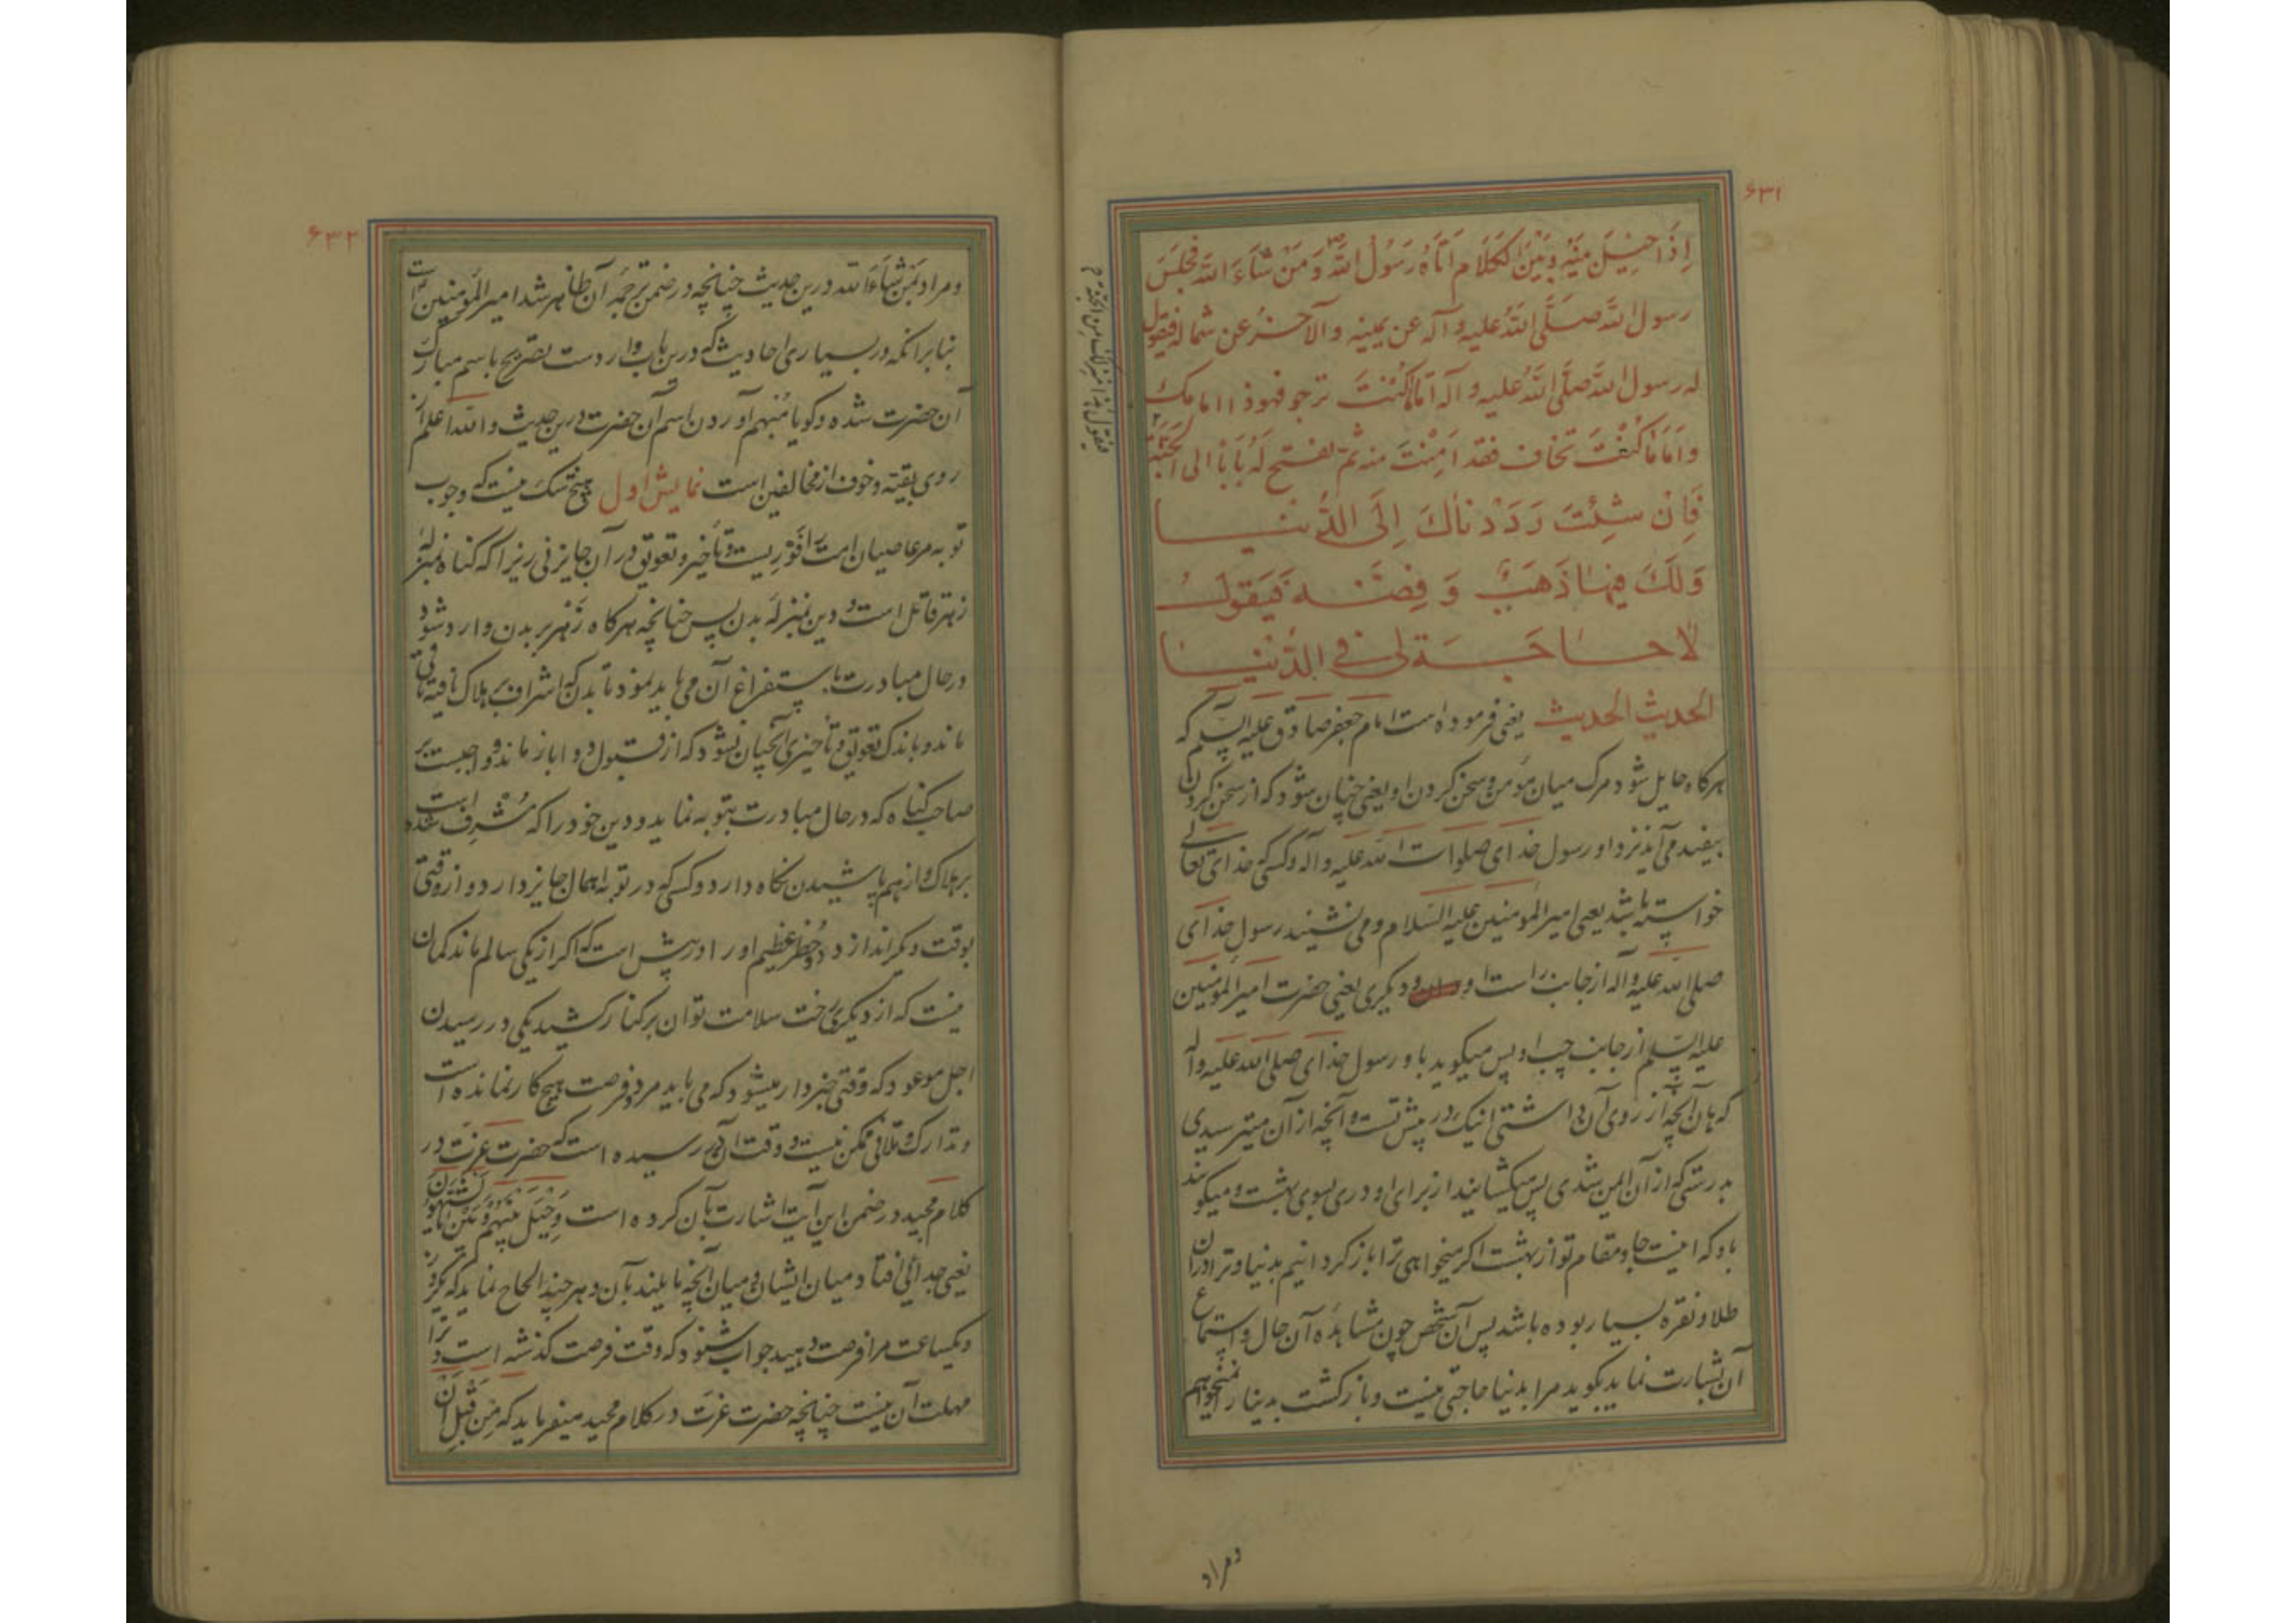 ۶۳۱
اِذَا حِیْلَ بَیْنَهُ وَ بَیْنَ الْکَلَامِ اَتَاهُ رَسُولُ اللّٰهِ وَمَنْ شَاءَ اللّٰهُ فَجَلَسَ
رسول اللّٰه صَلَّی اللّٰهُ علیه و آله عن یمینه والآخَرُ عن شماله فیقول
له رسول اللّٰه صَلَّی اللّٰهُ علیه و آله اَمَّا مَا کُنْتَ ترجو فهو ذا امامک
وَاَمَّا مَا کُنْتَ تخاف فقد اَمِنْتَ منه ثُمَّ یفتح لَهُ بَابًا الی الجَنَّة
فَاِنْ شِئْتَ رَدَدْنَاكَ اِلَی الدُّنْیَا
وَلَكَ فِیهَا ذَهَبٌ وَ فِضَّة فَیَقُولُ
لَا حَاجَةَ لِی فِی الدُّنْیَا
الحدیث الحدیث یعنی فرموده است امام جعفر صادق علیه السلم که
هرکاه حایل شود مرک میان مؤمن و سخن کردن او یعنی چنان شود که از سخن کردن
بیفتد می‌آید نزد او رسول خدای صلوات الله علیه و آله و کسی که خدای تعالی
خواسته باشد یعنی امیر المؤمنین علیه السلام و می نشیند رسول خدای
صلی الله علیه و آله از جانب راست او و دیکری یعنی حضرت امیر المؤمنین
علیه السلم از جانب چپ او پس میکوید باو رسول خدای صلی الله علیه و آله
که هان آنچه آرزوی آن داشتی اینک در پیش تست و آنچه از آن میترسیدی
بدرستی که از آن ایمن شدی پس میکشایند از برای او دری بسوی بهشت و میکویند
باو که اینست جا و مقام تو از بهشت اکر میخواهی ترا باز کردانیم بدنیا و ترا در آن
طلا و نقره بسیار بوده باشد پس آن شخص چون مشاهده آن حال و استماع
آن بشارت نماید بکوید مرا بدنیا حاجتی نیست و بازکشت بدنیا را نمیخواهم
فیقول هذا منزلک من الجنة
ومراد
۶۳۲
ومراد بمَن شَاءَ الله درین حدیث چنانچه در ضمن ترجمه آن ظاهر شد امیر المؤمنین است
بنابر انکه در بسیاری احادیث که درین باب وارد ست تصریح باسم مبارک
آن حضرت شده و کویا مُبهم آوردن اسم آن حضرت درین حدیث والله اعلم از
روی تقیّه و خوف از مخالفین است نمایش اول هیچ شک نیست که وجوب
توبه مر عاصیان امت را فَوْرِیست و تأخیر و تعویق در آن جایز نی زیرا که کناه بمنزله
زهر قاتل است و دین بمنزله بدن پس چنانچه هرکاه زهر بر بدن وارد شود
در حال مبادرت باستفراغ آن می باید نمود تا بدن که اشراف بر هلاک یافته باقی
ماند و باندک تعویق و تأخیری آنچنان نشود که از قبول دوا باز ماند واجبست بر
صاحب کناه که در حال مبادرت بتوبه نماید و دین خود را که مُشرِف شده است
بر هلاک و از هم پاشیدن نکاه دارد و کسی که در توبه اهمال جایز دارد و از وقتی
بوقت دیکر اندازد دو خطر عظیم او را در پیش است که اکر از یکی سالم ماند کمان
نیست که از دیکری رخت سلامت توان بر کنار کشید یکی در رسیدن
اجل موعود که وقتی خبردار میشود که می باید مرد و فرصت هیچ کار نمانده است
و تدارک و تلافی ممکن نیست و وقت آن در رسیده است که حضرت عزّت در
کلام مجید در ضمن این آیت اشارت بآن کرده است وَحِیْلَ بَیْنَهُمْ وَبَیْنَ مَا یَشْتَهُونَ
یعنی جدائی افتاد میان ایشان و میان آنچه مایلند بآن و هر چند الحاح نماید که یکروز
و یکساعت مرا فرصت دهید جواب شنود که وقت فرصت کذشته است و ترا
مهلت آن نیست چنانچه حضرت عزّت در کلام مجید میفرماید که مِنْ قَبْلِ اَنْ